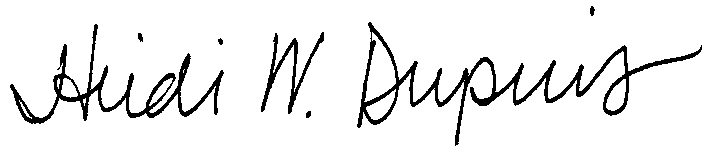 Heidi W. Dupuis